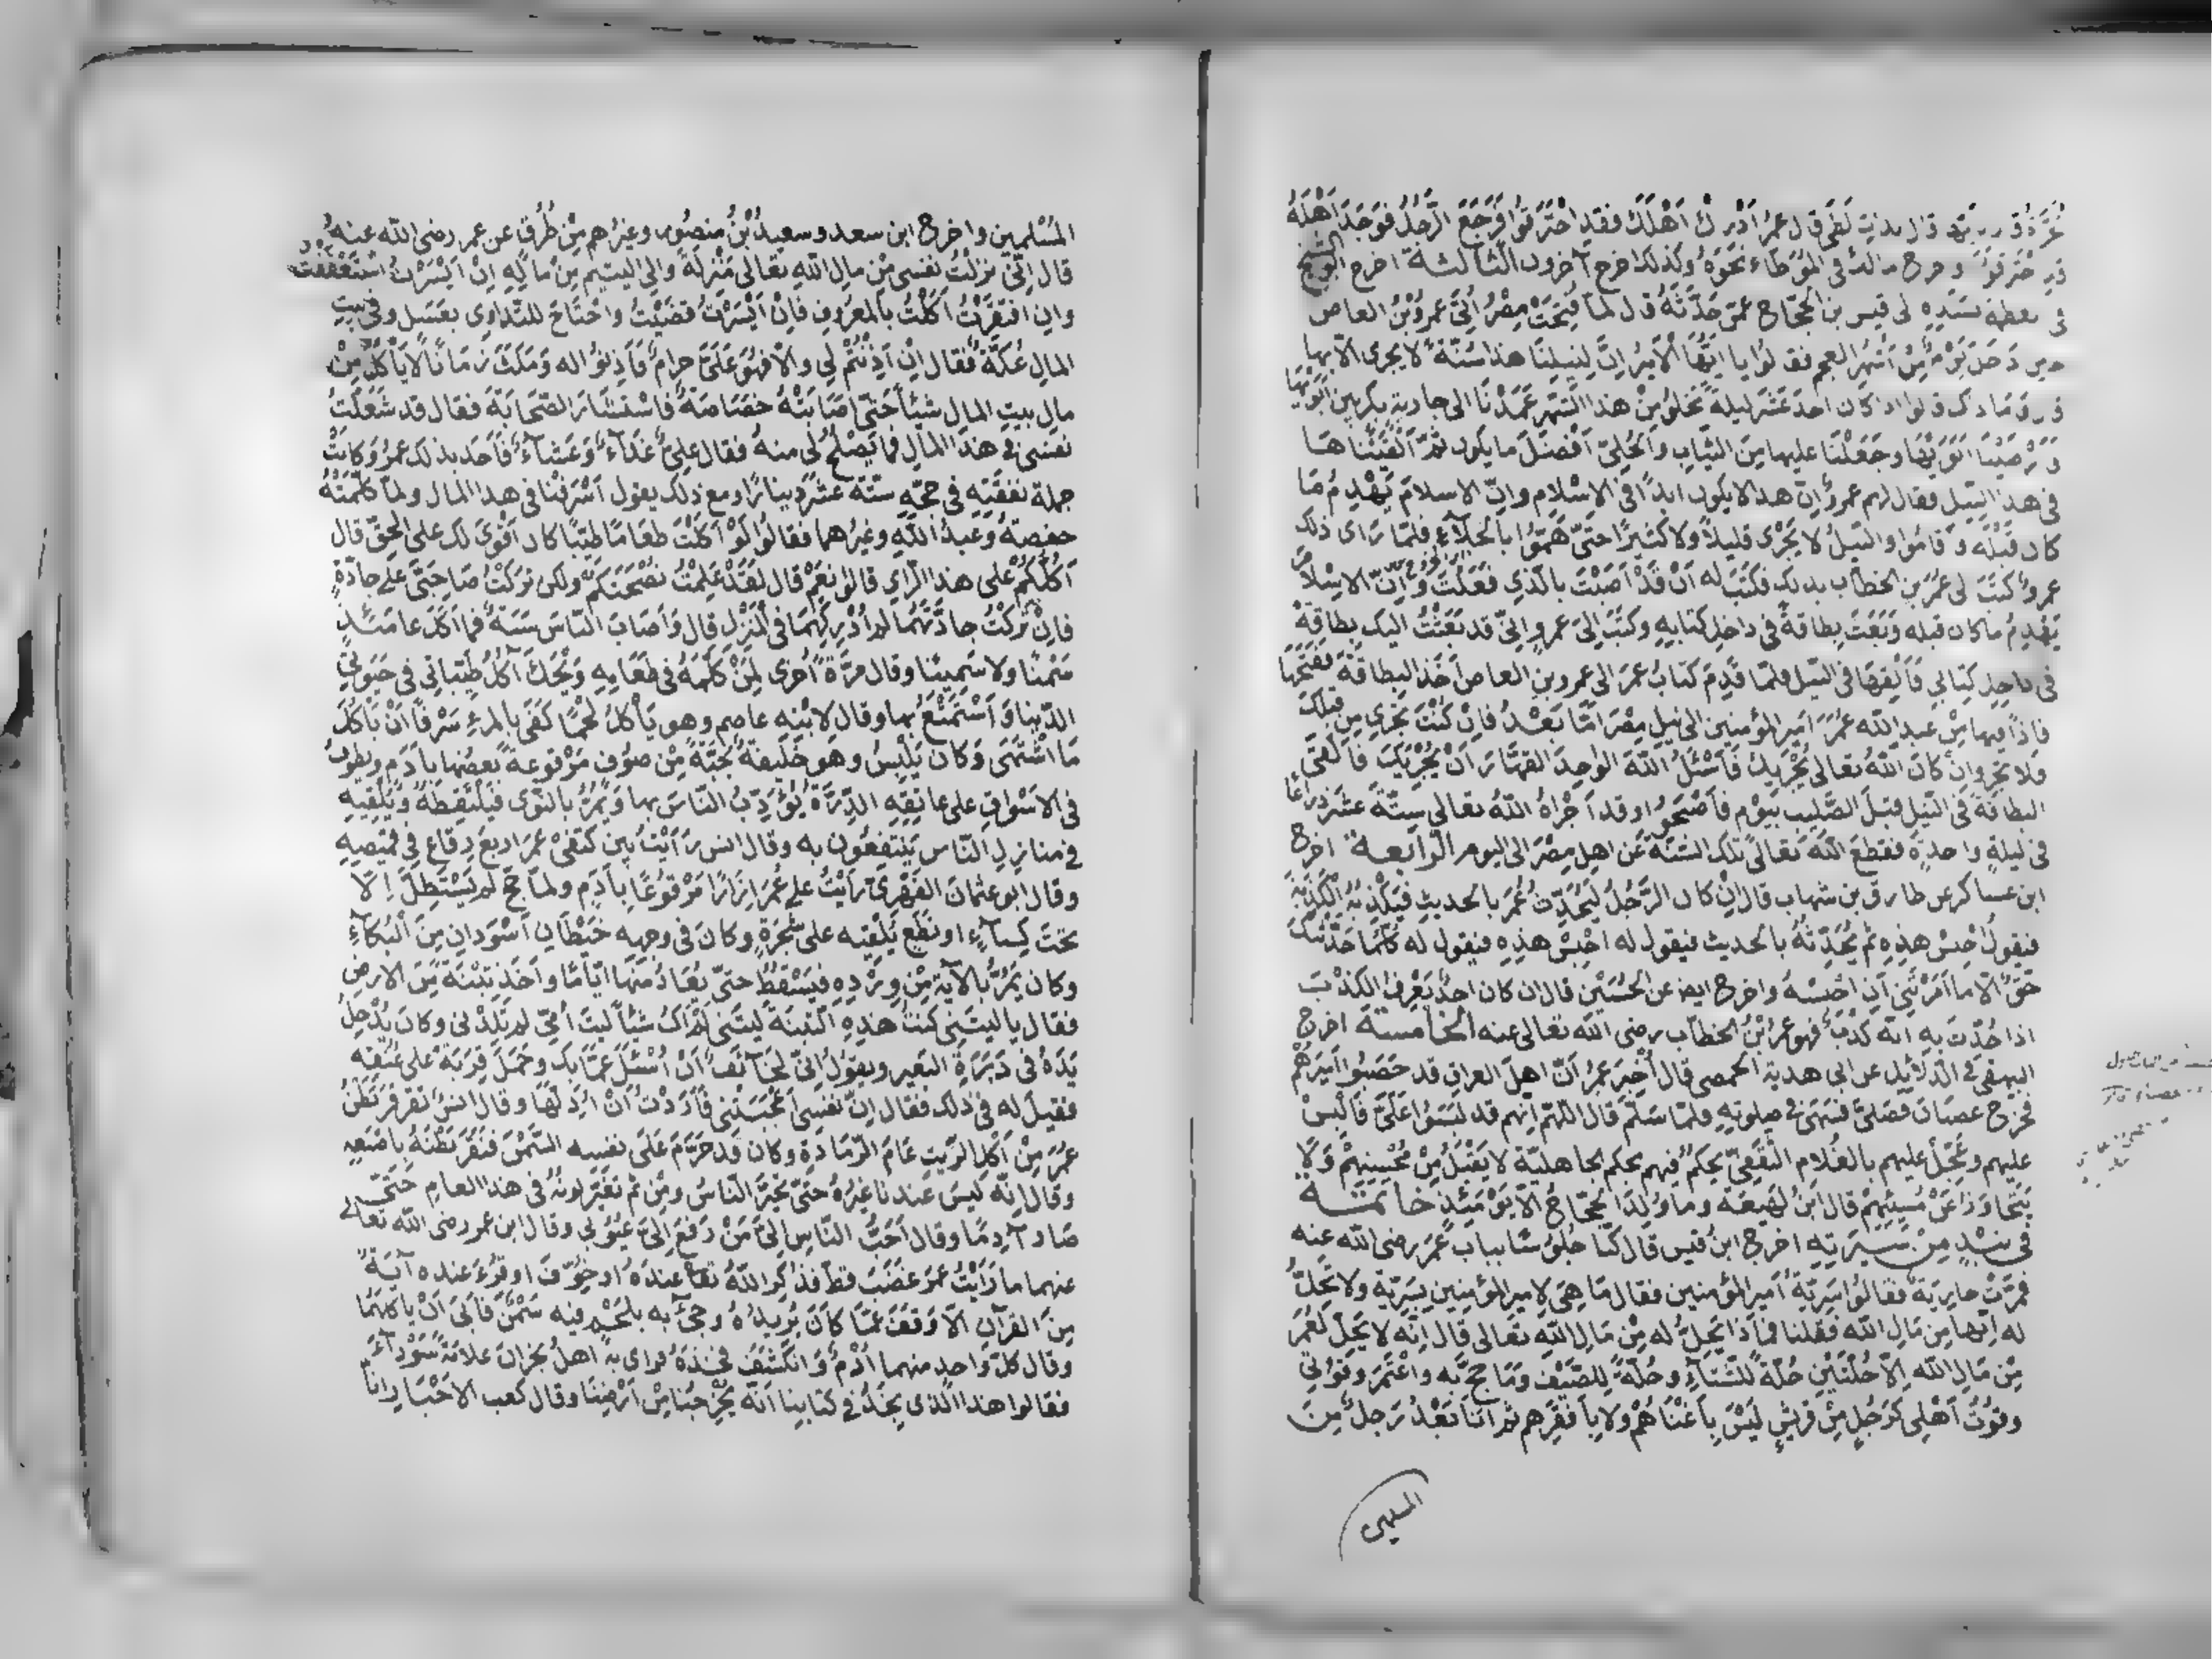 قال بذات لظى قال عمر ادرك اهلك فقد احترقوا فرجع الرجل فوجد اهله
قد احترقوا واخرج مالك في الموطاء نحوه وكذلك اخرج آخرون الثالثة اخرج ابو الشيخ
في بسنده الى قيس بن الحجاج عمن حدثه قال لما فتحت مصر اتى عمرو بن العاص
حين دخل من اشهر العجم فقالوا يا ايها الامير ان لنيلنا هذا سنة لا يجري الا بها
قال وما ذاك قالوا اذا كان احد عشر ليلة تخلو من هذا الشهر عمدنا الى جارية بكر بين ابويها
فارضينا ابويها وجعلنا عليها من الثياب والحلي افضل ما يكون ثم القيناها
في هذا النيل فقال لهم عمرو ان هذا لا يكون ابدا في الاسلام وان الاسلام يهدم ما
كان قبله فاقاموا والنيل لا يجري قليلا ولا كثيرا حتى هموا بالجلاء فلما راى ذلك
عمرو كتب الى عمر بن الخطاب بذلك فكتب له ان قد اصبت بالذي فعلت وان الاسلام
يهدم ما كان قبله وبعث بطاقة في داخل كتابه وكتب الى عمرو اني قد بعثت اليك بطاقة
في داخل كتابي فالقها في النيل فلما قدم كتاب عمر الى عمرو بن العاص اخذ البطاقة ففتحها
فاذا فيها من عبد الله عمر امير المؤمنين الى نيل مصر اما بعد فان كنت تجري من قبلك
فلا تجر وان كان الله تعالى يجريك فاسئل الله الواحد القهار ان يجريك فالقى
البطاقة في النيل قبل الصليب بيوم فاصبحوا وقد اجراه الله تعالى ستة عشر ذراعا
في ليلة واحدة فقطع الله تعالى تلك السنة عن اهل مصر الى اليوم الرابعة اخرج
ابن عساكر عن طارق بن شهاب قال ان كان الرجل ليحدث عمر بالحديث فيكذبه الكذبة
فيقول احبس هذه ثم يحدثه بالحديث فيقول له احبس هذه فيقول له كلما حدثتك
حق الا ما امرتني ان احبسه واخرج ايضا عن الحسن قال ان كان احد يعرف الكذب
اذا حدث به انه كذب فهو عمر بن الخطاب رضي الله تعالى عنه الخامسة اخرج
البيهقي في الدلايل عن ابي هدبة الحمصي قال اخبر عمر ان اهل العراق قد حصبوا اميرهم
فخرج غضبان فصلى فسهى في صلوته فلما سلم قال اللهم انهم قد لبسوا علي فالبس
عليهم وعجل عليهم بالغلام الثقفي يحكم فيهم بحكم الجاهلية لا يقبل من محسنهم ولا
يتجاوز عن مسيئهم قال ابن لهيعة وما ولد الحجاج الا يومئذ خاتمة
في نبذ من سيرته اخرج ابن قيس قال كنا جلوسا بباب عمر رضي الله عنه
فمرت جارية فقالوا سرية امير المؤمنين فقال ما هي لامير المؤمنين بسرية ولا تحل
له انها من مال الله فقلنا فماذا يحل له من مال الله تعالى قال انه لا يحل لعمر
من مال الله الا حلتين حلة للشتاء وحلة للصيف وما حج به واعتمر وقوتي
وقوت اهلي كرجل من قريش ليس باغناهم ولا بافقرهم ثم انا بعد رجل من
المسلمين
المسلمين واخرج ابن سعد وسعيد بن منصور وغيرهم من طرق عن عمر رضي الله عنه
قال اني نزلت نفسي من مال الله تعالى منزلة والي اليتيم من ماله ان ايسرت استعففت
وان افتقرت اكلت بالمعروف فان ايسرت قضيت واحتاج للتداوي بعسل وفي بيت
المال عكة فقال ان اذنتم لي والا فهو علي حرام فاذنوا له ومكث زمانا لا يأكل من
مال بيت المال شيئا حتى اصابته خصاصة فاستشار الصحابة فقال قد شغلت
نفسي في هذا المال فما يصلح لي منه فقال علي غداء وعشاء فاخذ بذلك عمر وكانت
جملة نفقته في حجه ستة عشر دينارا ومع ذلك يقول اسرفنا في هذا المال ولما كلمته
حفصة وعبد الله وغيرهما فقالوا لو اكلت طعاما طيبا كان اقوى لك على الحق قال
اكلكم على هذا الراي قالوا نعم قال لقد علمت نصحكم ولكن تركت صاحبي على جادة
فان تركت جادتهما لم ادركهما في المنزل قال واصاب الناس سنة فما اكل عامئذ
سمنا ولا سمينا وقال مرة اخرى لمن كلمه في طعامه ويحك آكل طيباتي في حيوتي
الدنيا واستمتع بها وقال لابنه عاصم وهو يأكل لحما كفى بالمرء سرفا ان يأكل
ما اشتهى وكان يلبس وهو خليفة جبة من صوف مرقوعة بعضها بادم ويطوف
في الاسواق على عاتقه الدرة يؤدب الناس بها ويمر بالنوى فيلتقطه ويلقيه
في منازل الناس ينتفعون به وقال انس رايت بين كتفي عمر اربع رقاع في قميصه
وقال ابو عثمان الفهري رايت على عمر ازارا مرقوعا بادم ولما حج لم يستظل الا
تحت كساء او نطع يلقيه على شجرة وكان في وجهه خطان اسودان من البكاء
وكان يمر بالآية من ورده فيسقط حتى يعاد منها اياما واخذ تبنة من الارض
فقال يا ليتني كنت هذه التبنة ليتني لم اك شيئا ليت امي لم تلدني وكان يدخل
يده في دبرة البعير ويقول اني لخائف ان اسئل عما بك وحمل قربة على عنقه
فقيل له في ذلك فقال ان نفسي اعجبتني فاردت ان اذلها وقال انس تقرقر بطن
عمر من اكل الزيت عام الرمادة وكان قد حرم على نفسه السمن فنقر بطنه باصبعه
وقال انه ليس عندنا غيره حتى يحيى الناس ومن ثم تغير لونه في هذا العام حتى
صار آدما وقال احب الناس الي من رفع الي عيوبي وقال ابن عمر رضي الله تعالى
عنهما ما رايت عمر غضب قط فذكر الله تعا عنده او خوف او قرء عنده آية
من القرآن الا وقف عما كان يريده وجئ به بلحم فيه سمن فابى ان يأكلهما
وقال كل واحد منهما ادم وانكشف فخذه فراى به اهل نجران علامة سوداء
فقالوا هذا الذي نجد في كتابنا انه يخرجنا من ارضنا وقال كعب الاحبار انا